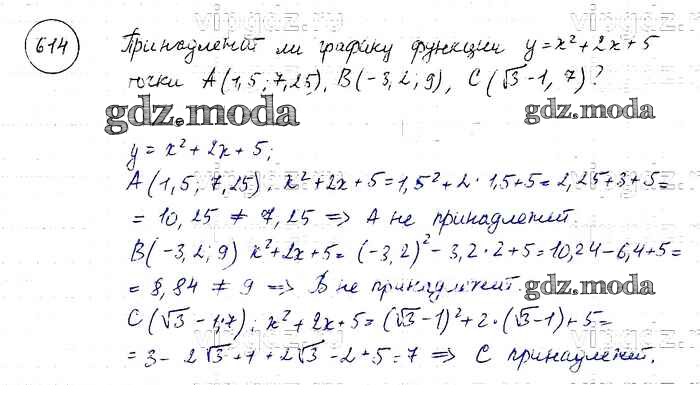 614
Принадлежит ли графику функции y = x² + 2x + 5
точки A(1,5; 7,25), B(-3,2; 9), C(√3 - 1, 7)?
gdz.moda
gdz.moda
y = x² + 2x + 5;
A(1,5; 7,25); x² + 2x + 5 = 1,5² + 2 · 1,5 + 5 = 2,25 + 3 + 5 =
= 10,25 ≠ 7,25 => A не принадлежит.
B(-3,2; 9) x² + 2x + 5 = (-3,2)² - 3,2 · 2 + 5 = 10,24 - 6,4 + 5 =
= 8,84 ≠ 9 => B не принадлежит.
gdz.moda
C(√3 - 1; 7); x² + 2x + 5 = (√3 - 1)² + 2 · (√3 - 1) + 5 =
= 3 - 2√3 + 1 + 2√3 - 2 + 5 = 7 => C принадлежит.